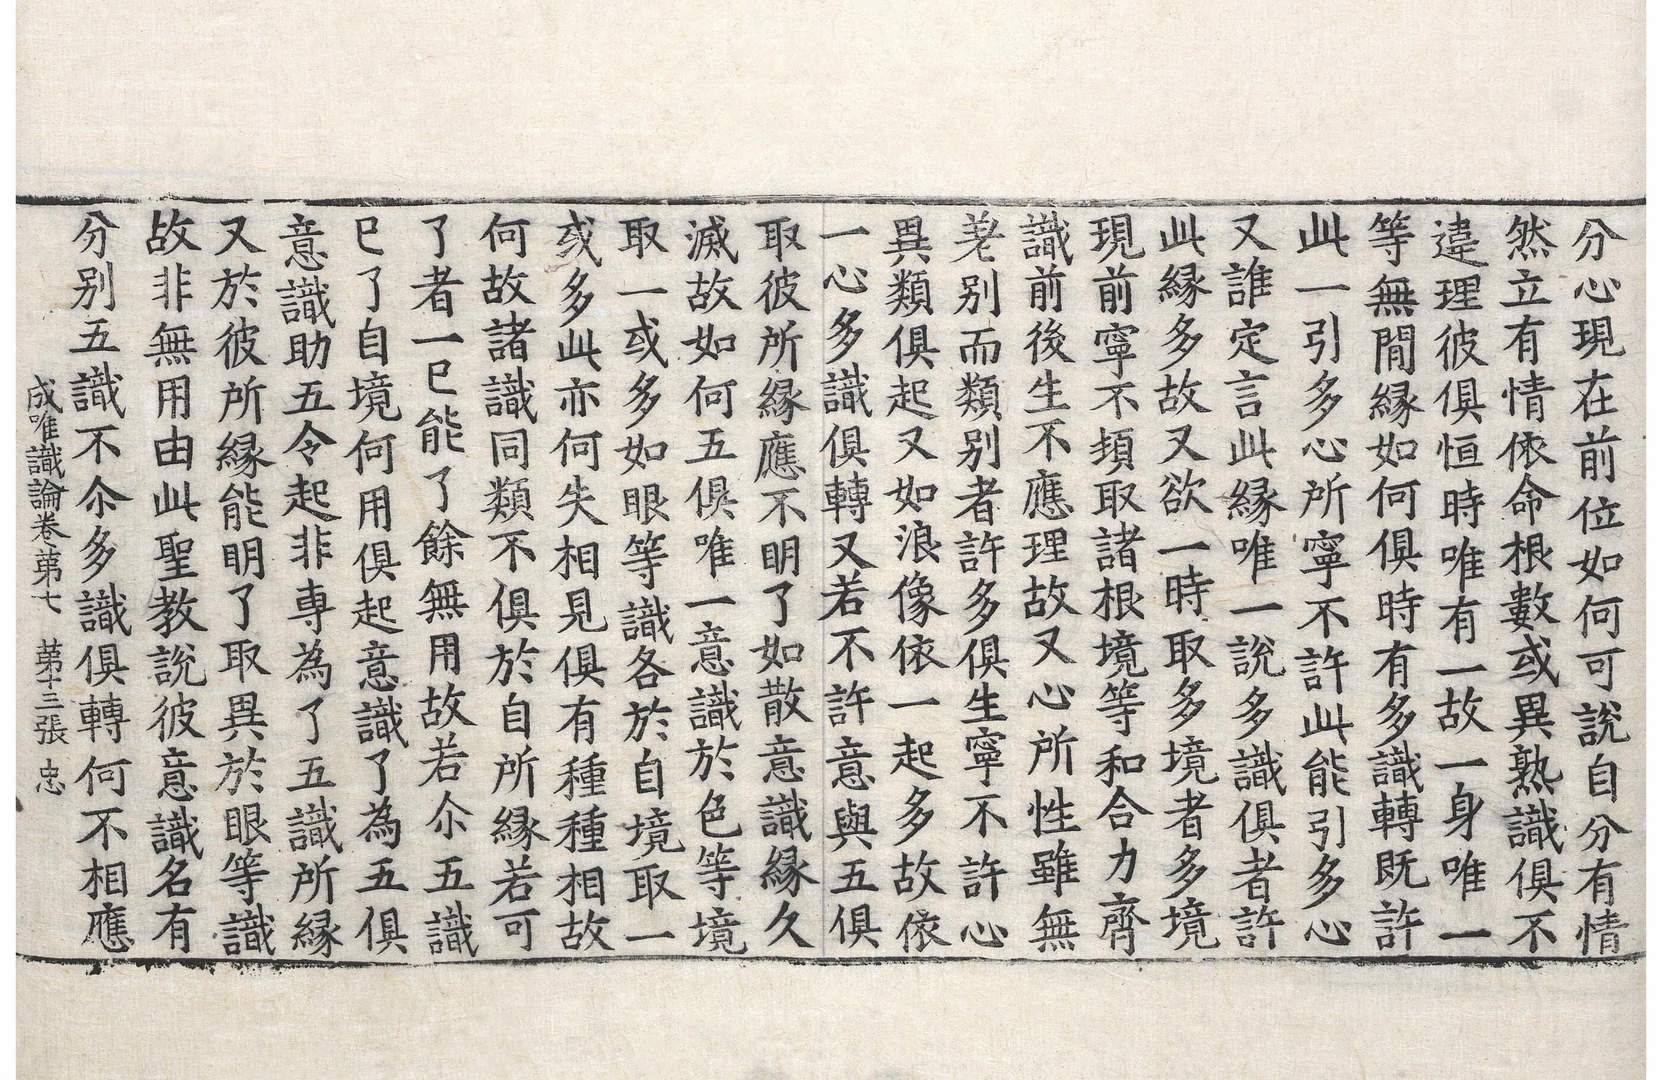 分心現在前位如何可說自分有情
然立有情依命根數或異熟識俱不
違理彼俱恒時唯有一故一身唯一
等無間緣如何俱時有多識轉既許
此一引多心所寧不許此能引多心
又誰定言此緣唯一說多識俱者許
此緣多故又欲一時取多境者多境
現前寧不頓取諸根境等和合力齊
識前後生不應理故又心所性雖無
差別而類別者許多俱生寧不許心
異類俱起又如浪像依一起多故依
一心多識俱轉又若不許意與五俱
取彼所緣應不明了如散意識緣久
滅故如何五俱唯一意識於色等境
取一或多如眼等識各於自境取一
或多此亦何失相見俱有種種相故
何故諸識同類不俱於自所緣若可
了者一已能了餘無用故若尒五識
已了自境何用俱起意識了為五俱
意識助五令起非專為了五識所緣
又於彼所緣能明了取異於眼等識
故非無用由此聖教說彼意識名有
分別五識不尒多識俱轉何不相應
成唯識論卷第七　第十三張　忠